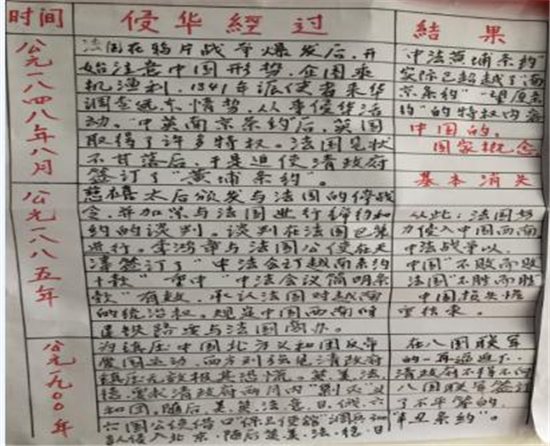 时间
侵华经过
结果
公元一八四八年八月
法国在鸦片战争爆发后，开
始注意中国形势，企图乘
机渔利，1841年派使者来华
调查远东情势，从事侵华活
动。"中英南京条约"后，英国
取得了许多特权。法国见状
不甘落后，于是迫使清政府
签订了"黄埔条约"。
"中法黄埔条约"
实际已超越了"南
京条约""望厦条
约"的特权内容
中国的，
国家概念，
基本消失
公元一八八五年
慈禧太后颁发与法国的停战
令，并加紧与法国进行缔约和
约的谈判。谈判在法国巴黎
进行。李鸿章与法国公使在天
津签订了"中法会订越南条约
十款"重申"中法会议简明条
款"有效，承认法国对越南
的统治权，规定中国西南修
建铁路应与法国商办。
从此：法国势
力侵入中国西南
中法战争以
中国"不败而败
法国"不胜而胜
中国损失惨
重结束。
公元一九00年
为镇压中国北方义和团反帝
爱国运动，西方列强见清政府
镇压无效极其恐慌。英美法
德，要求清政府两月内"剿灭"义
和团，随后英、美、法、意、日、俄六
六国公使借口"保卫使馆"调兵
队侵入北京，随后英、美、法、德、日
在八国联军
的一再逼迫下，
清政府不得不向
八国联军签订
了不平等的，
"辛丑条约"。